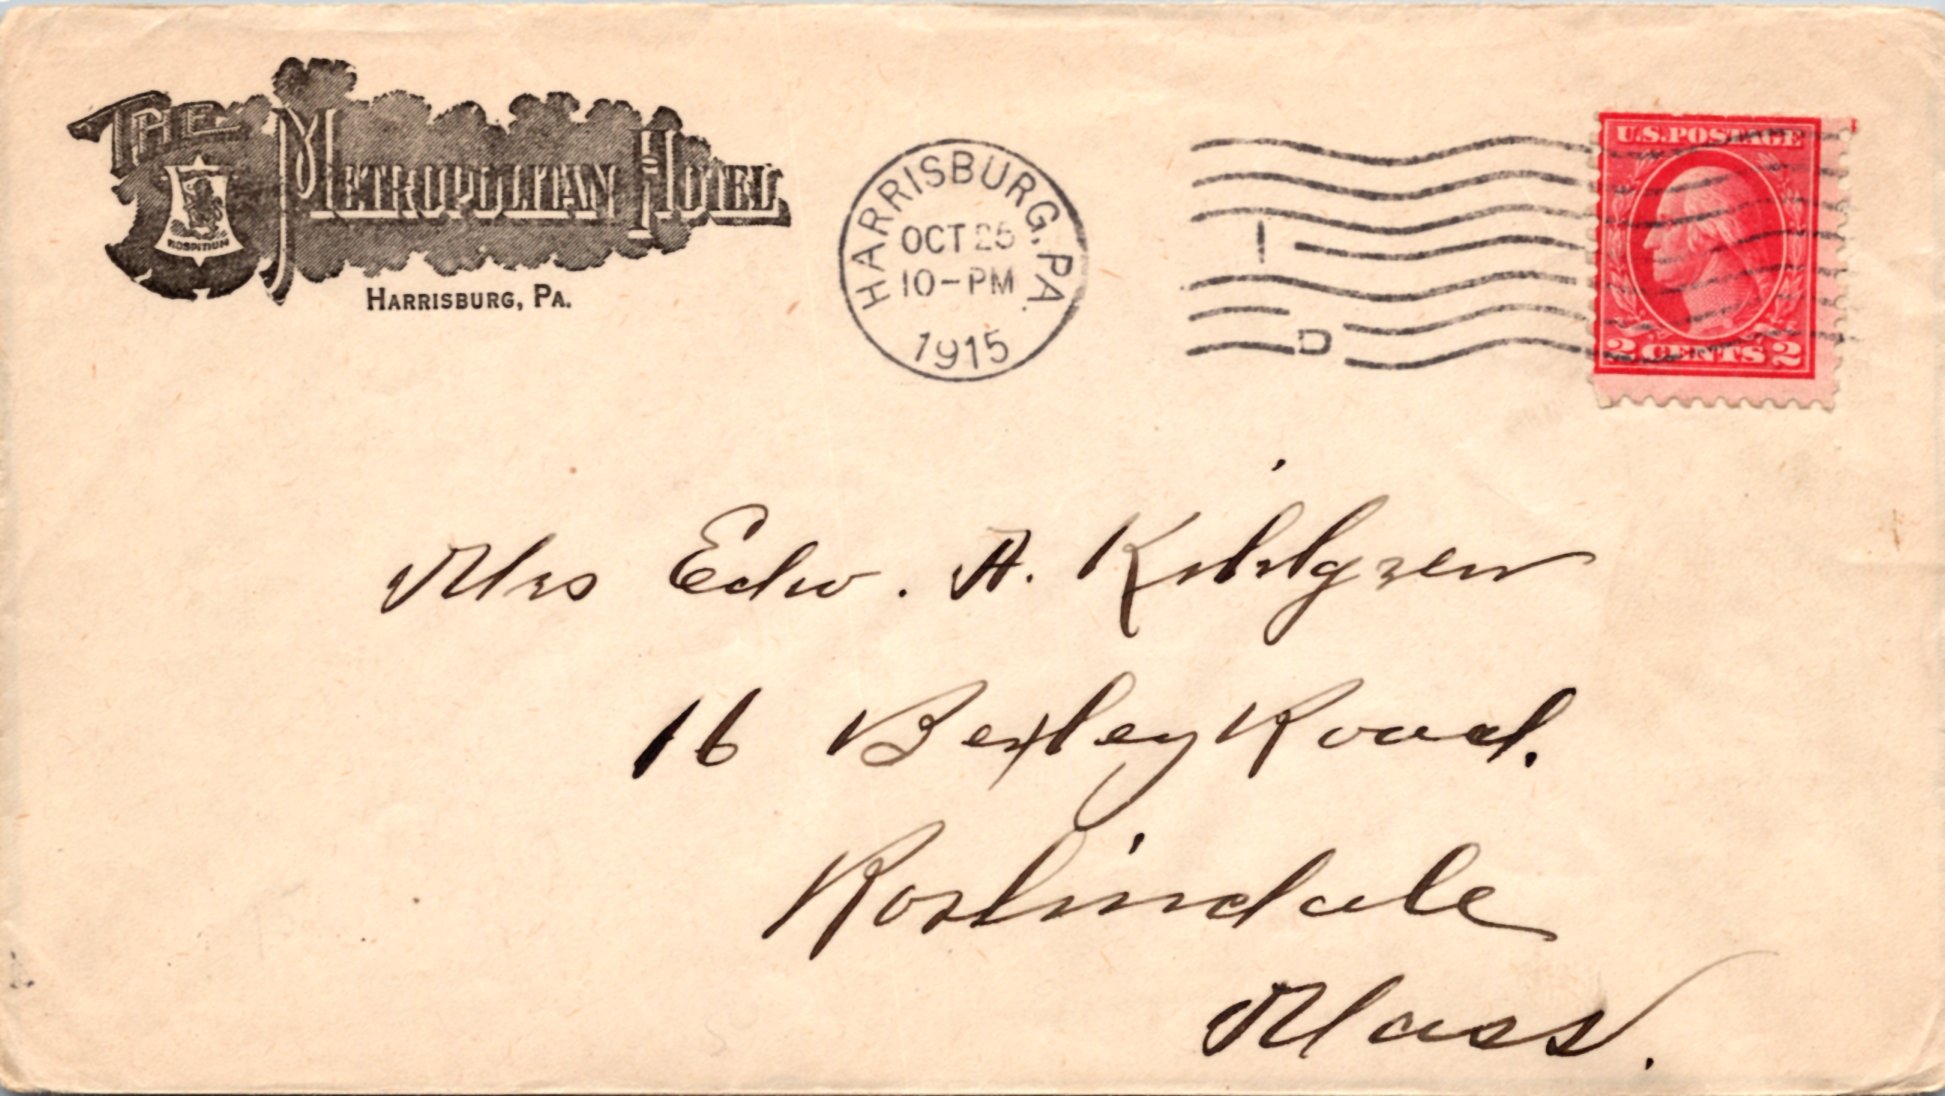 THE METROPOLITAN HOTEL
HOSPITIUM
HARRISBURG, PA.
HARRISBURG, PA.
OCT 25
10-PM
1915
1
D
U.S. POSTAGE
2 CENTS 2
Mrs Edw. A. Kihlgren
16 Bexley Road.
Roslindale
Mass.